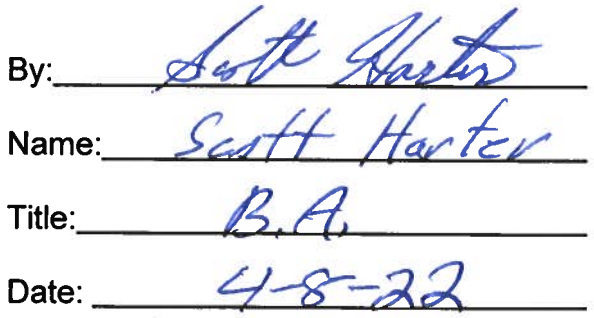 By: Scott Harter
Name: Scott Harter
Title: B.A.
Date: 4-8-22